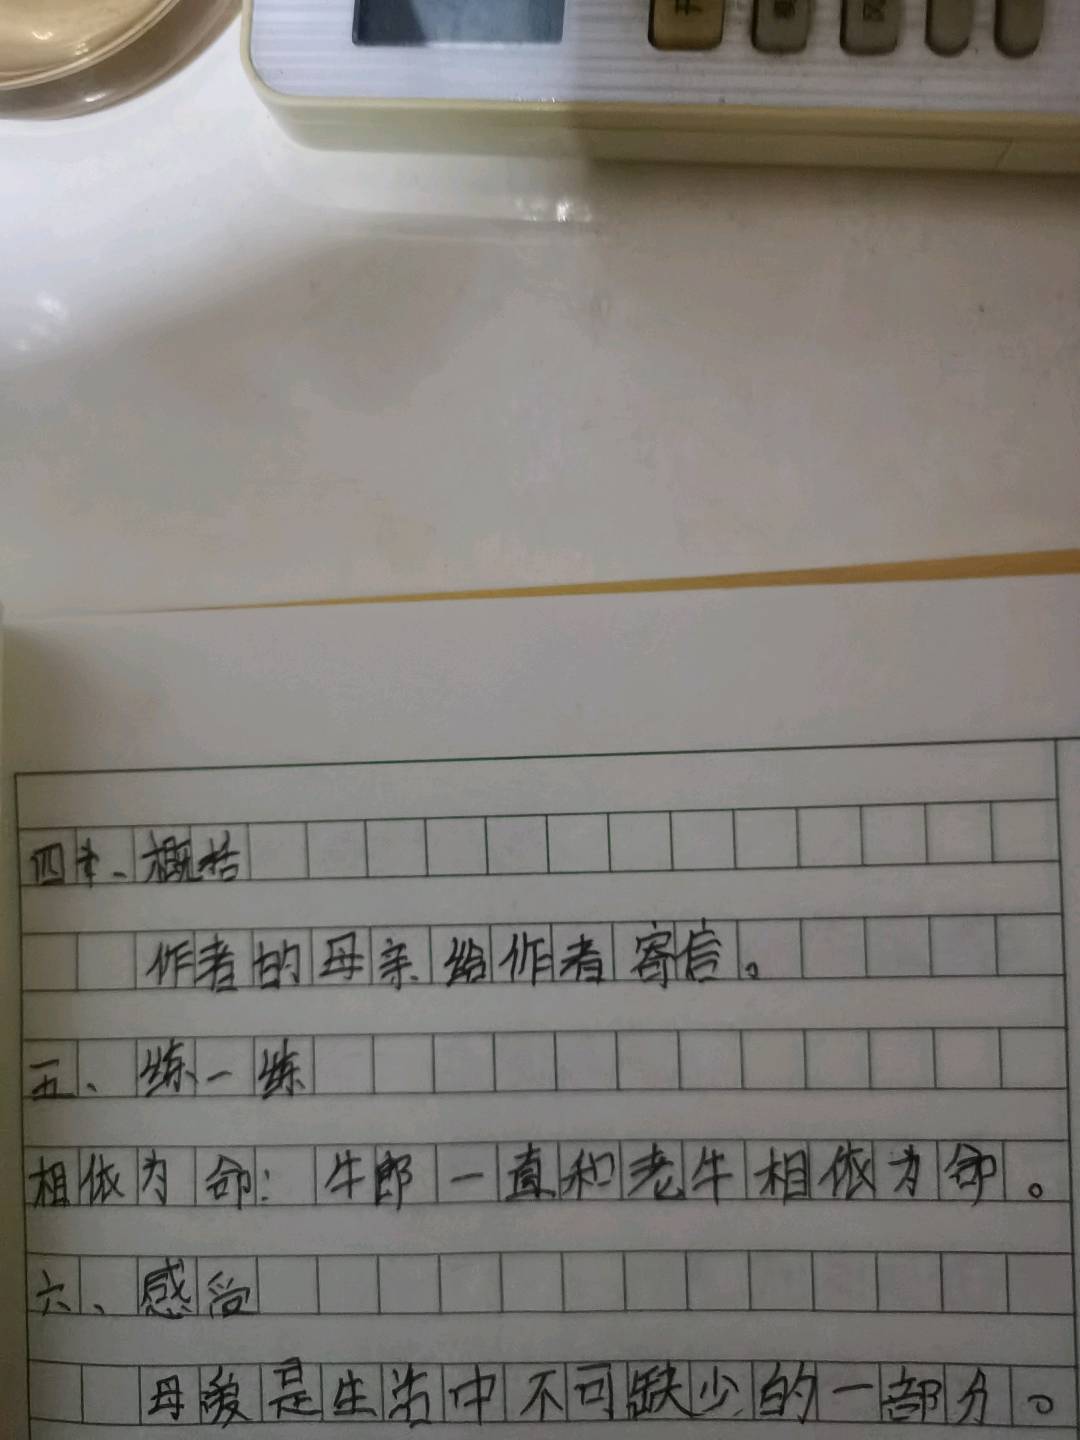 四、概括
作者的母亲给作者寄信。
五、练一练
相依为命：牛郎一直和老牛相依为命。
六、感受
母爱是生活中不可缺少的一部分。